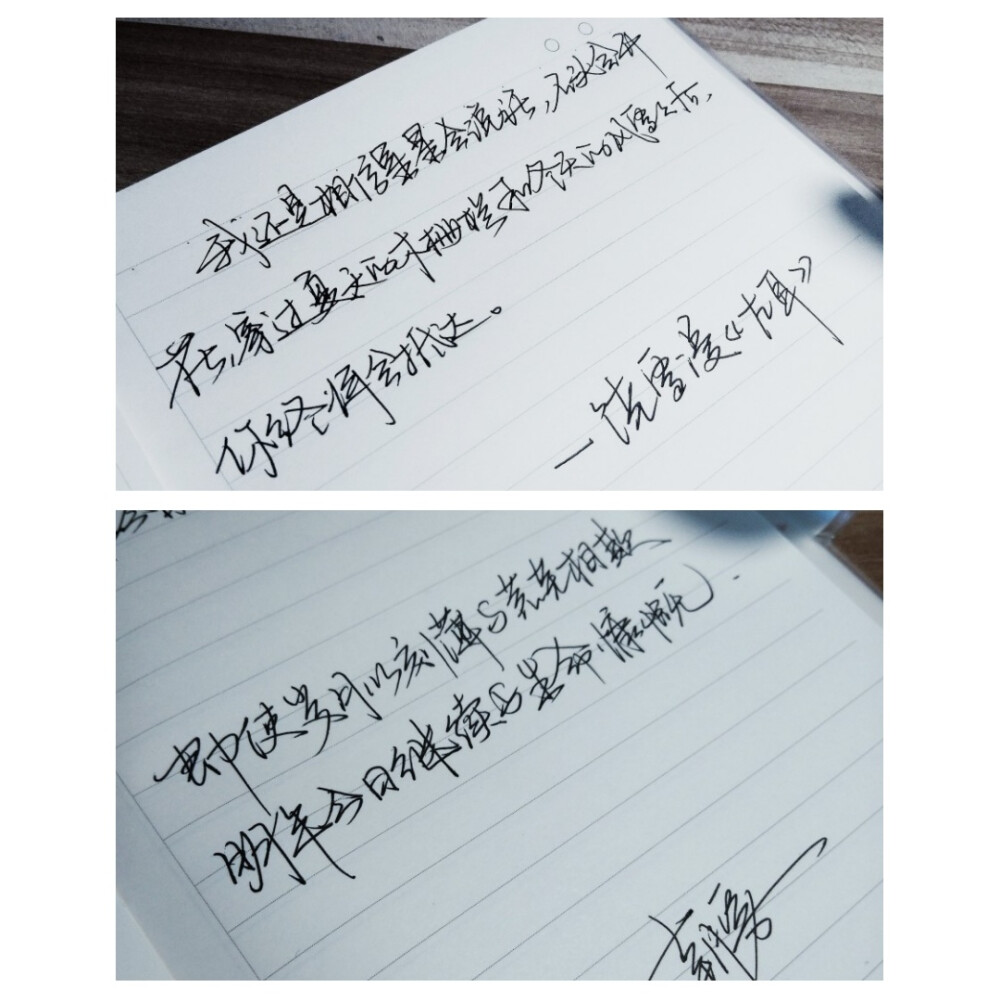 我还是相信星星会说话，石头会开
花，穿过夏天的木栅栏和冬天的风雪之后，
你终将会抵达。
—饶雪漫《左耳》
即使岁月以刻薄与荒芜相欺
明年今日继续与生命慷慨.